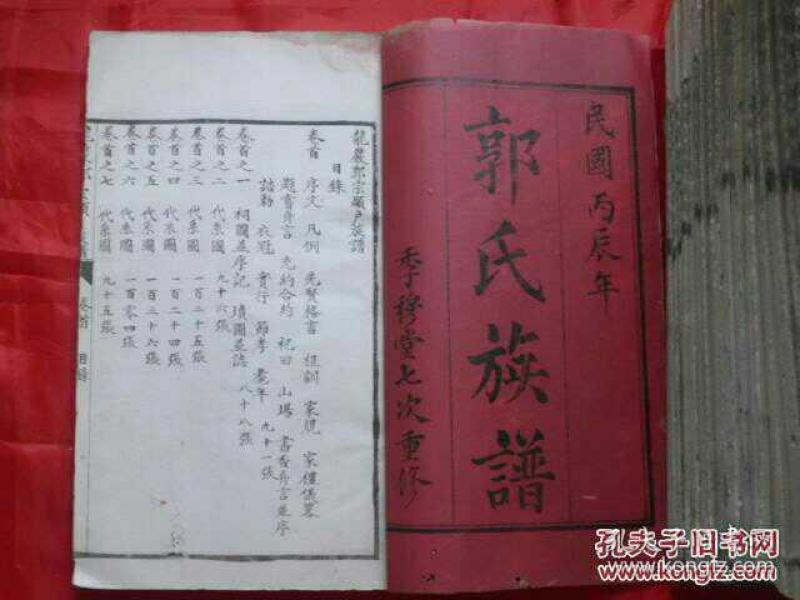 民國丙辰年
郭氏族譜
季穆堂七次重修
龍巖郭宗顯户族譜
目錄
卷首 序文 凡例 先賢格言 祖訓 家規 家禮儀畧
題畜弁言 充約合約 祀田 山場 書香弁言並序
誥勅 衣冠 實行 節孝 耄年 九十一張
卷首之一 祠圖並序記 墳圖並誌 八十八張
卷首之二 代系圖 九十六張
卷首之三 代系圖 一百二十五張
卷首之四 代系圖 一百二十四張
卷首之五 代系圖 一百三十六張
卷首之六 代系圖 一百零四張
卷首之七 代系圖 九十五張
卷首 目錄
孔夫子旧书网
www.kongfz.com